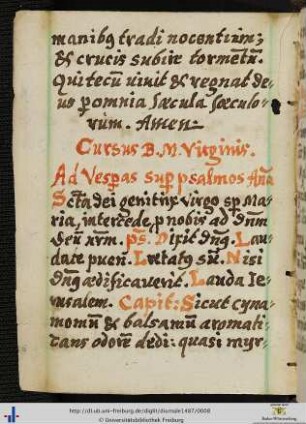 manibꝫ tradi nocentium;
& crucis subire tormẽtũ.
Qui tecũ uiuit & regnat de-
us ꝑ omnia sæcula sæculo-
rum. Amen
Cursus B. M. Virginis.
Ad Vesperas sup psalmos Aña
Scta dei genitrix virgo sp Ma-
ria, intercede, p nobis ad dnm
deũ nrm. ps. Dixit dñs. Lau-
date pueri. Lætatꝰ sũ. Nisi
dñs ædificauerit. Lauda Ie-
rusalem. Capit: Sicut cyna-
momũ & balsamũ aromati-
zans odorẽ dedi: quasi myr-
http://dl.ub.uni-freiburg.de/diglit/diurnale1487/0008
© Universitätsbibliothek Freiburg
Baden-Württemberg